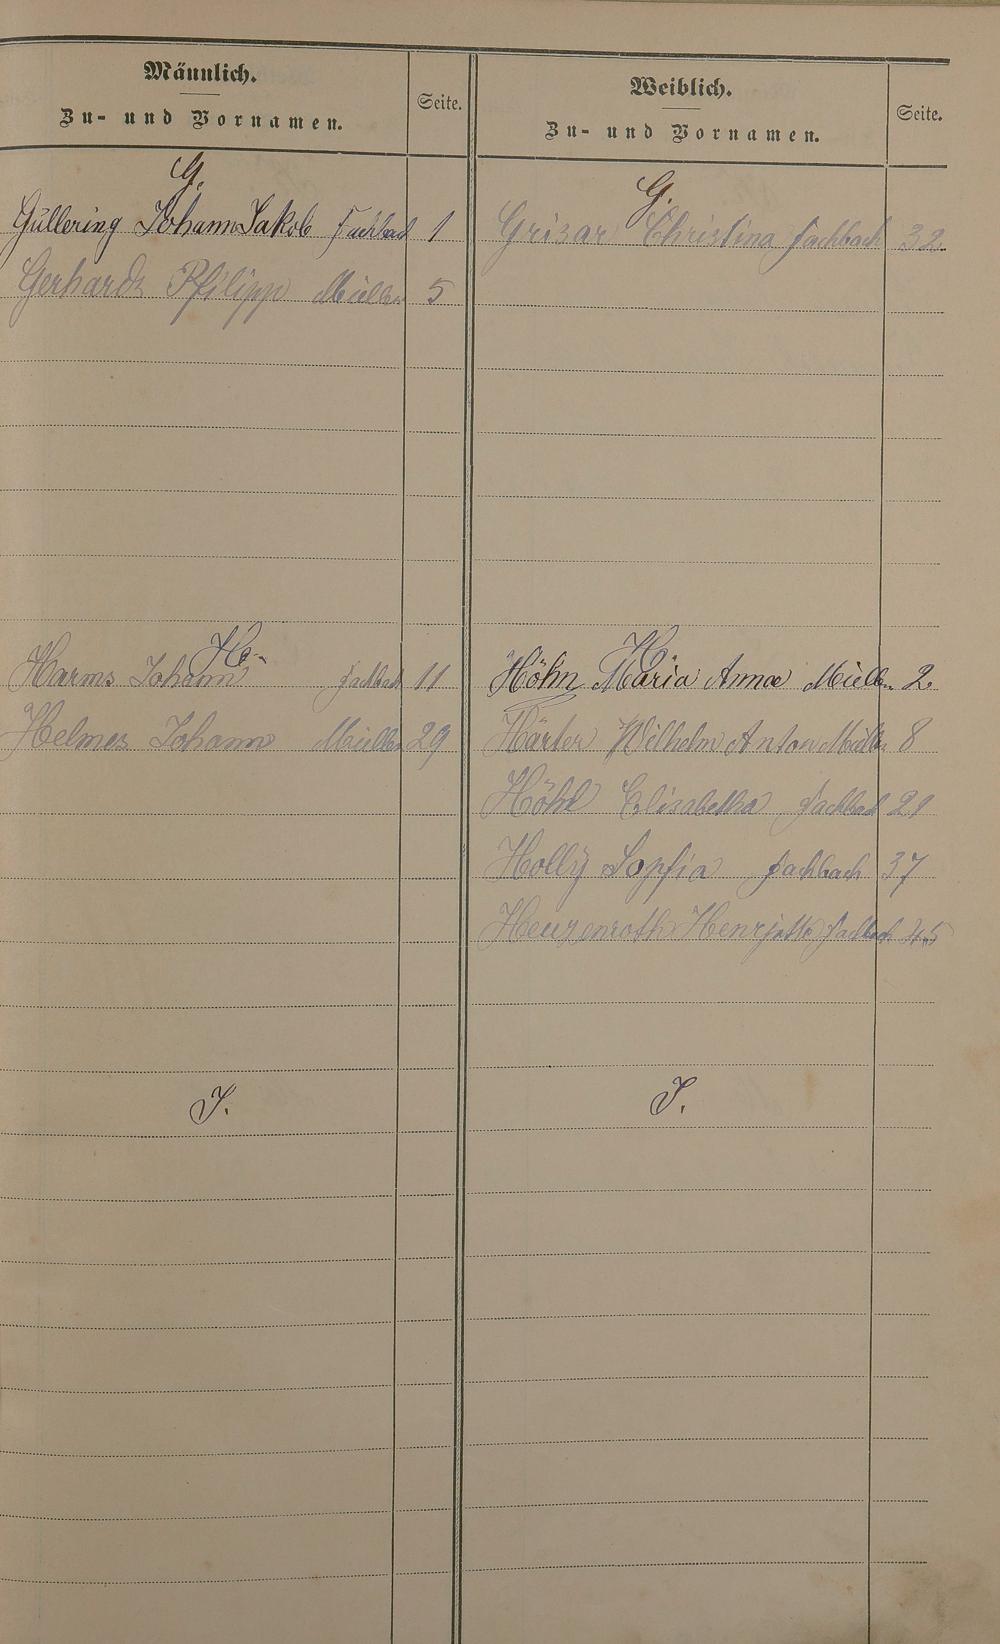 Männlich.
Zu- und Vornamen.
Seite.
G.
Güllering Johann Jakob Fachbach 1
Gerhardt Philipp Müllen 5
H.
Harms Johann Fachbach 11
Helmes Johann Müllen 29
J.
Weiblich.
Zu- und Vornamen.
Seite.
G.
Grisar Christina Fachbach 32
H.
Höhn Maria Anna Müllen 2.
Härter Wilhelm Anton Müllen 8
Höhl Elisabetha Fachbach 21
Holly Sophia Fachbach 37
Heuzenroth Henrjette Fachbach 45
J.